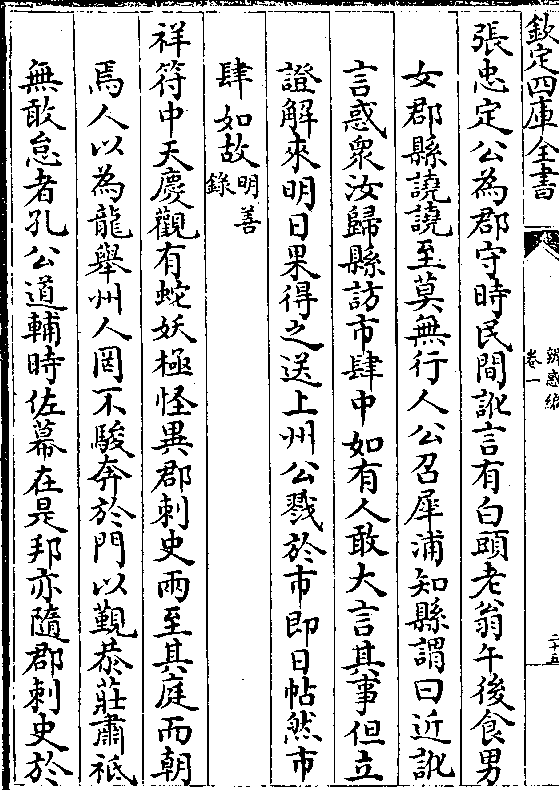 欽定四庫全書
辨惑編
卷一
二十五
張忠定公為郡守時民間訛言有白頭老翁午後食男
女郡縣譊譊至莫無行人公召犀浦知縣謂曰近訛
言惑衆汝歸縣訪市肆中如有人敢大言其事但立
證解來明日果得之送上州公戮於市即日帖然市
肆如故明善
錄
祥符中天慶觀有蛇妖極怪異郡刺史兩至其庭而朝
焉人以為龍舉州人罔不駿奔於門以覲恭莊肅祗
無敢怠者孔公道輔時佐幕在是邦亦隨郡刺史於